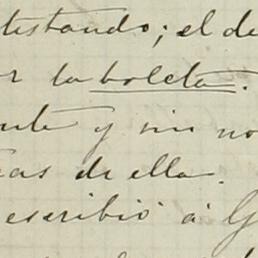 testando; el de
or la boleta.
ente y sin no
cas de ella.
escribió á G